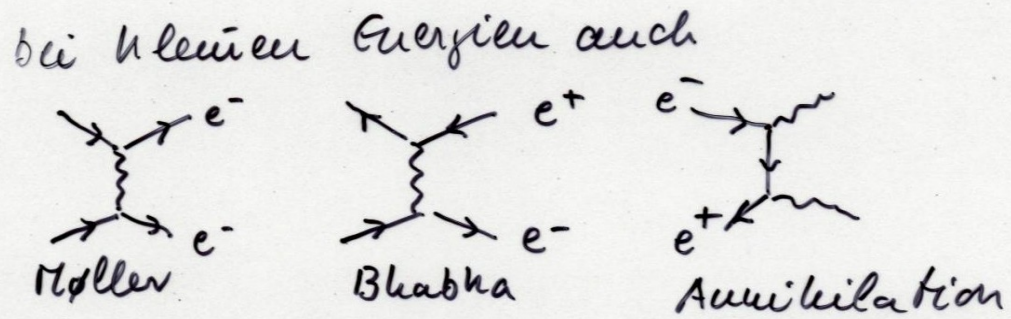 bei kleinen Energien auch
e⁻ e⁺ e⁻
e⁻ e⁻ e⁺
Møller Bhabha Annihilation